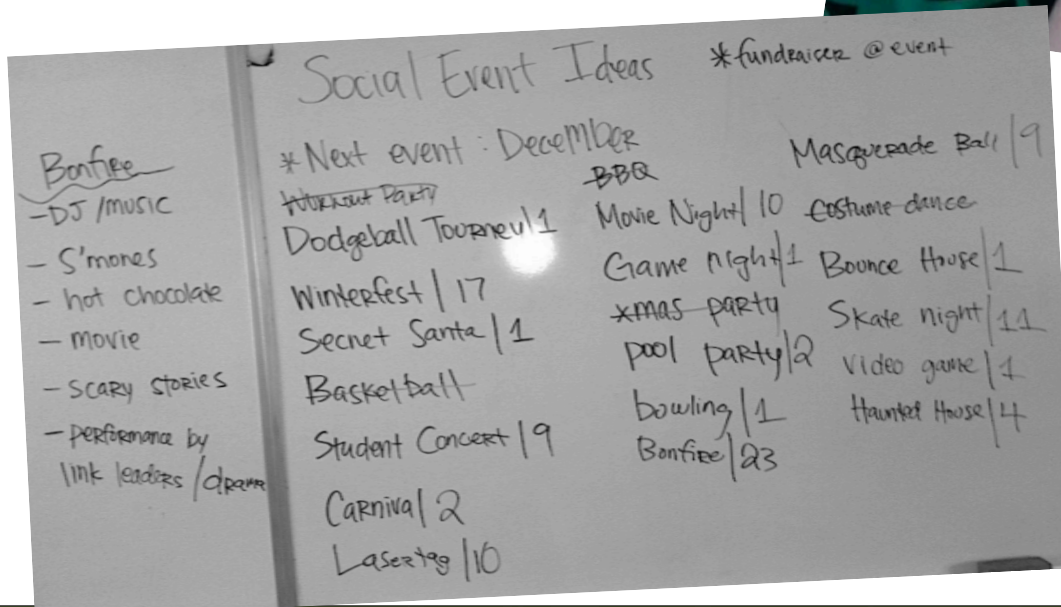 Social Event Ideas
*fundraiser @ event
*Next event : December
Bonfire
-DJ/music
- S'mores
- hot chocolate
- movie
- scary stories
- performance by
link leaders/drama
Workout Party
Dodgeball Tourney|1
Winterfest|17
Secret Santa|1
Basketball
Student Concert|9
Carnival|2
Lasertag|10
BBQ
Movie Night|10
Game night|1
xmas party
pool party|2
bowling|1
Bonfire|23
Masquerade Ball|9
Costume dance
Bounce House|1
Skate night|11
video game|1
Haunted House|4